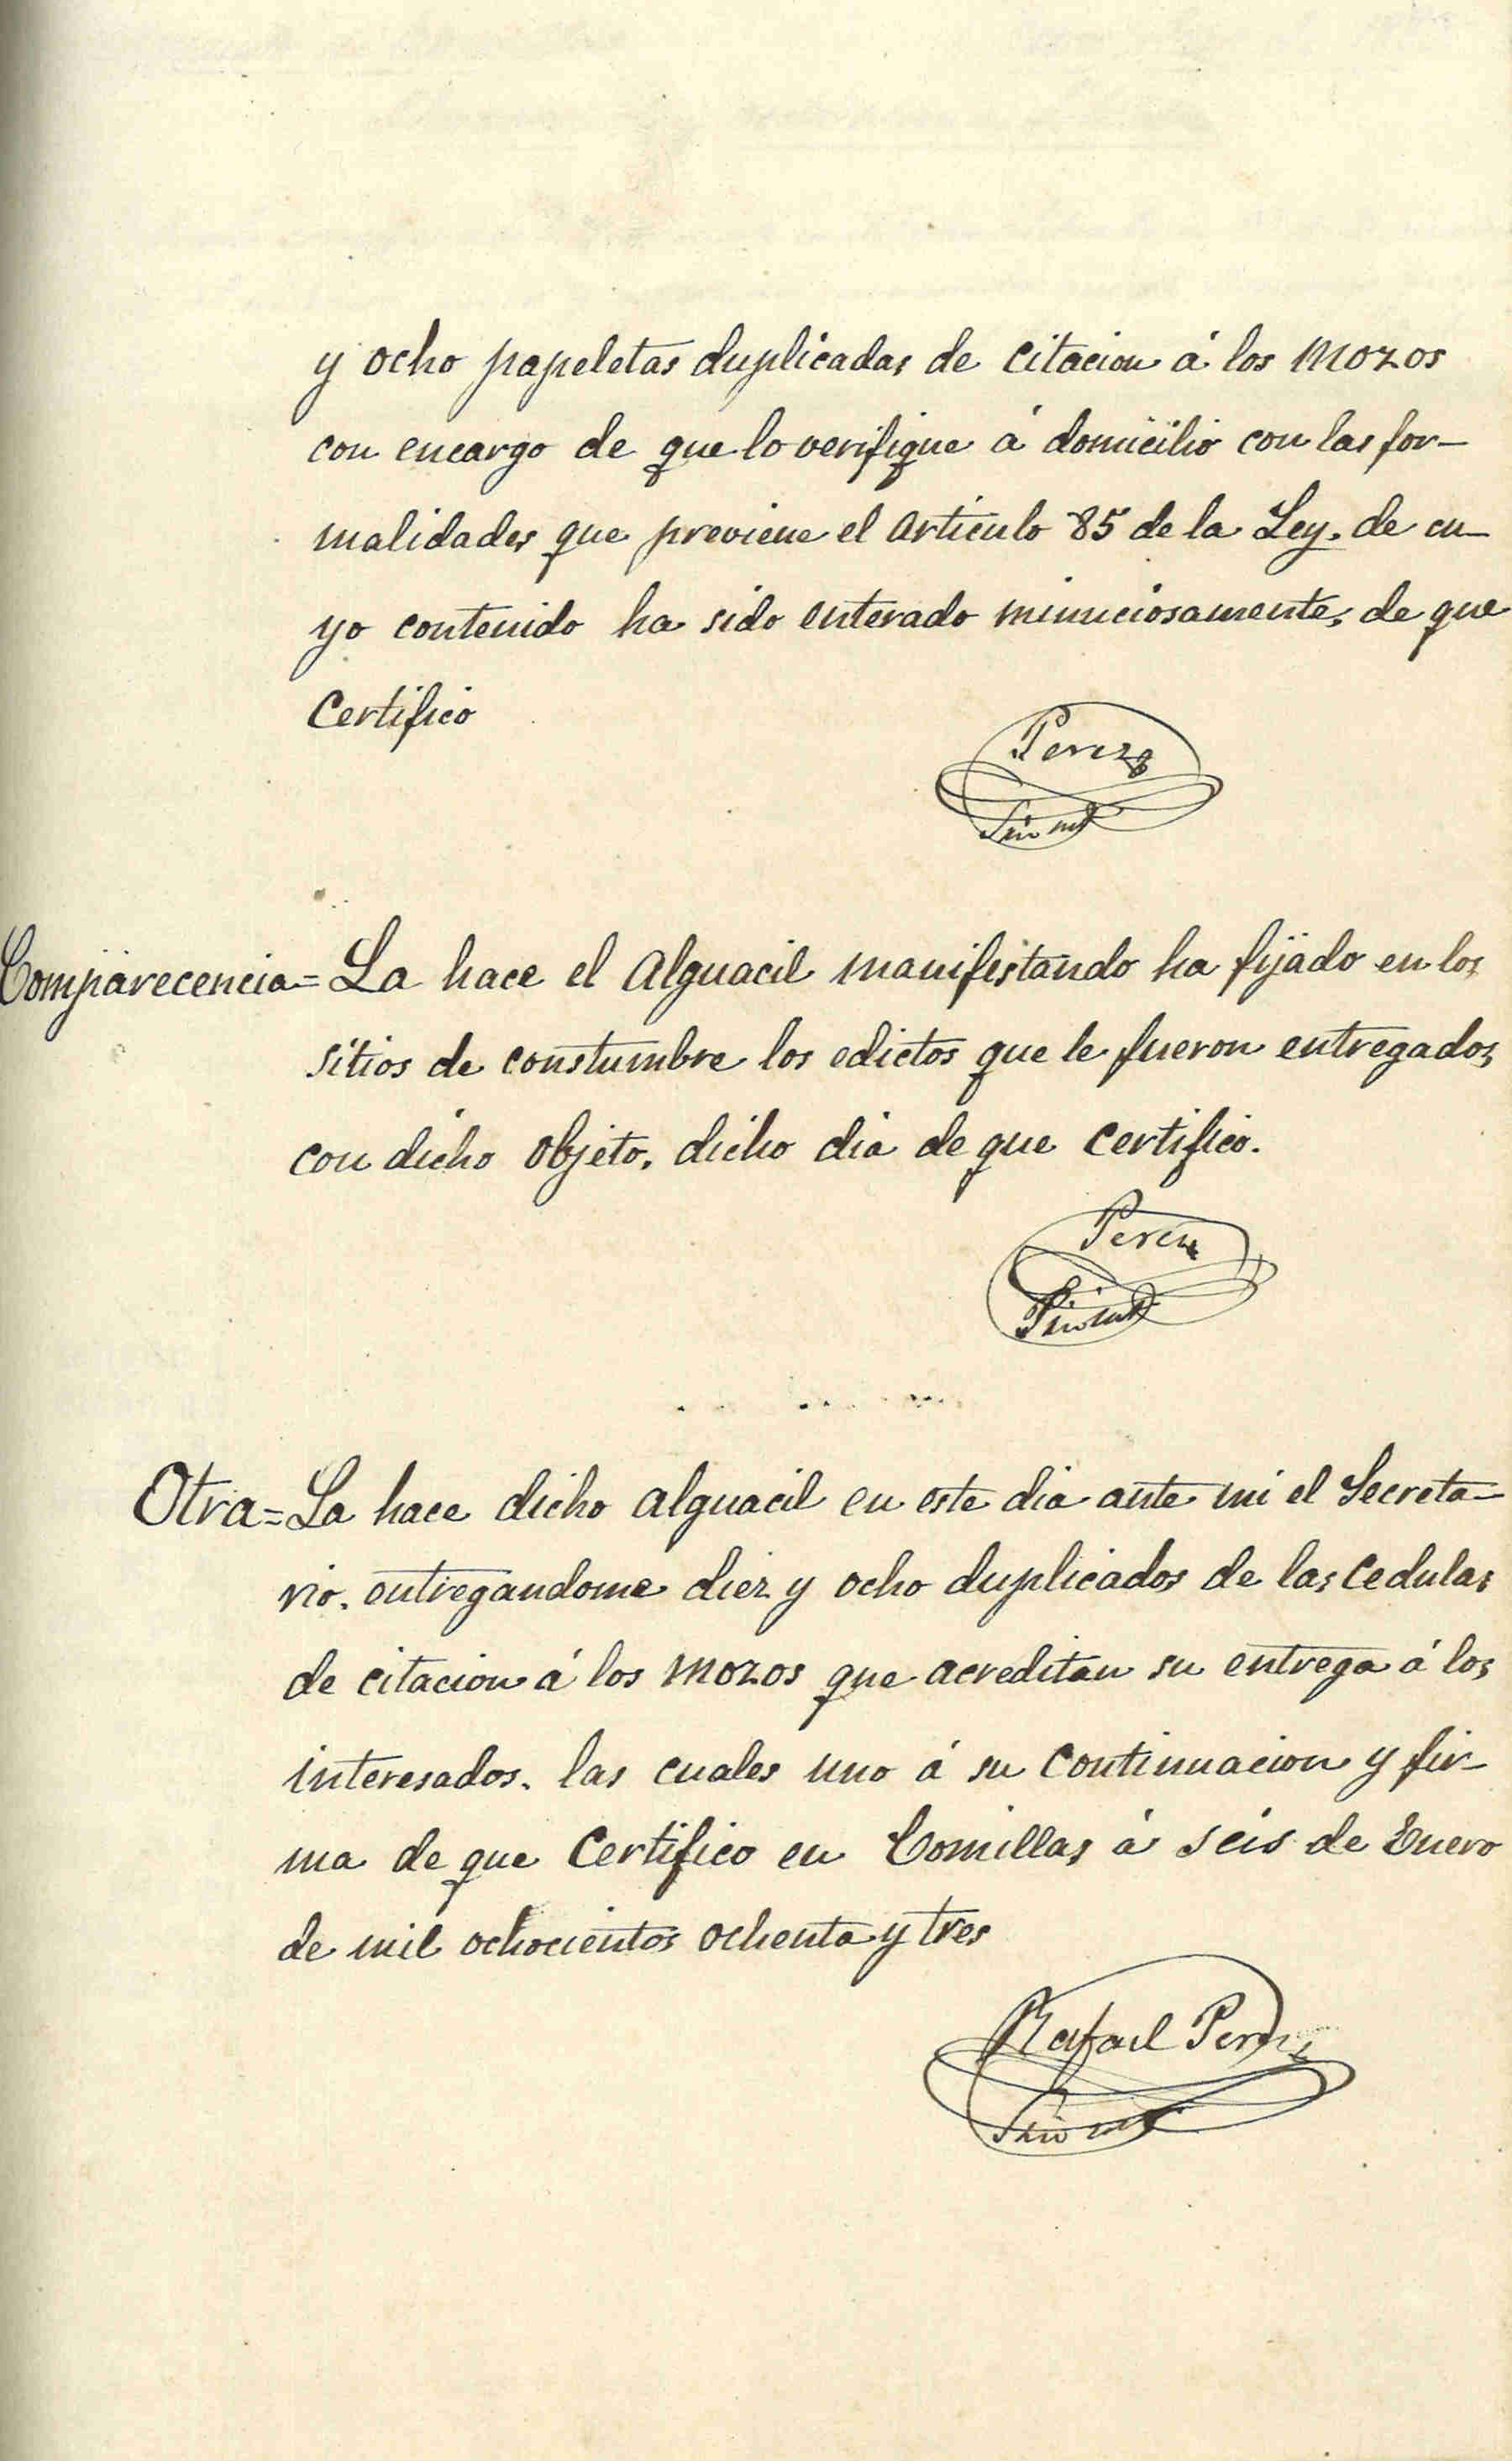 y ocho papeletas duplicadas de citacion á los mozos
con encargo de que lo verifique á domicilio con las for-
malidades que previene el articulo 85 de la Ley. de cu-
yo contenido ha sido enterado minuciosamente, de que
Certifico
Perez
Comparecencia= La hace el alguacil manifestando ha fijado en los
sitios de constumbre los edictos que le fueron entregados
con dicho objeto. dicho dia de que certifico.
Perez
Otra= La hace dicho alguacil en este dia ante mi el Secreta-
rio. entregandome diez y ocho duplicados de las cedulas
de citacion á los mozos que acreditan su entrega á los
interesados. las cuales uno á su continuacion y fir-
ma de que Certifico en Comillas á seis de Enero
de mil ochocientos ochenta y tres
Rafael Perez